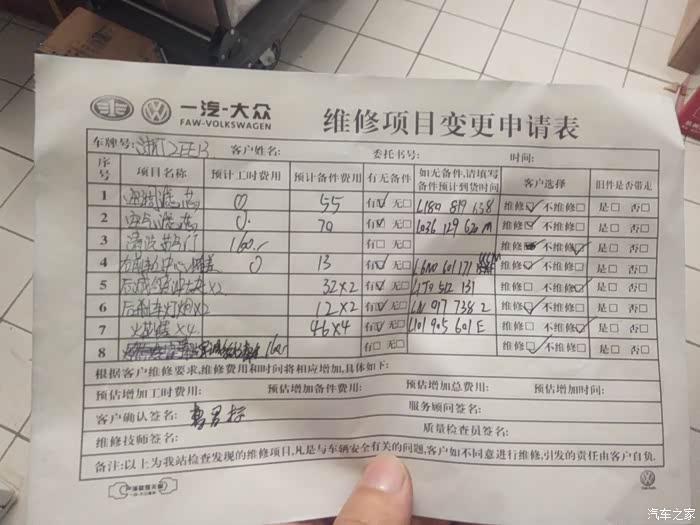 一汽-大众
FAW-VOLKSWAGEN
维修项目变更申请表
车牌号: 客户姓名: 委托书号: 时间:
序号 项目名称 预计工时费用 预计备件费用 有无备件 如无备件,请填写备件预计到货时间 客户选择 旧件是否带走
1 空调滤芯 0 55 有☑ 无□ L180 819 638 维修☑ 不维修□ 是□ 否□
2 空气滤芯 0. 70 有☑ 无□ L036 129 620 M 维修☑ 不维修□ 是□ 否□
3 清洗节气门 160.- 有□ 无□ 维修 不维修☑ 是□ 否□
4 0 13 有☑ 无□ L6N0 601 171 维修☑ 不维修□ 是□ 否□
5 ×2 32×2 有☑ 无□ 512 131 维修□ 不维修☑ 是□ 否□
6 后刹车灯泡×2 12×2 有☑ 无□ LN 917 738 2 维修☑ 不维修□ 是□ 否□
7 火花塞×4 46×4 有☑ 无□ L101 905 601 E 维修□ 不维修☑ 是□ 否□
8 160.- 有□ 无□ 维修☑ 不维修□ 是□ 否□
根据客户维修要求,维修费用和时间将相应增加,具体如下:
预估增加工时费: 预估增加备件费: 预估增加总费用: 预估增加时间:
客户确认签名: 服务顾问签名:
维修技师签名: 质量检查员签名:
备注:以上为我站检查发现的维修项目,凡是与车辆安全有关的问题,客户如不同意进行维修,引发的责任由客户自负.
汽车之家